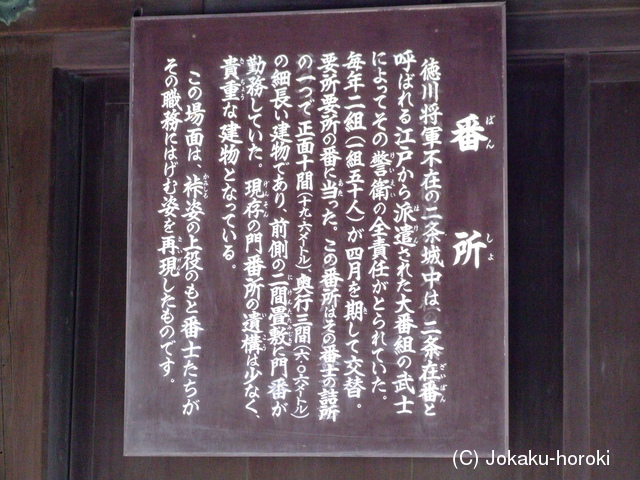 番所
ばんしょ
徳川将軍不在の二条城中は、二条在番と
呼ばれる江戸から派遣された大番組の武士
によってその警衛の全責任がとられていた。
毎年二組(一組五十人)が四月を期して交替。
要所要所の番に当った。この番所はその番士の詰所
の一つで正面十間(十九.六メートル)、奥行三間(六.〇六メートル)
の細長い建物であり、前側の二間畳敷に門番が
勤務していた。現存の門番所の遺構は少なく、
貴重な建物となっている。
この場面は、裃姿の上役のもと番士たちが
その職務にはげむ姿を再現したものです。
(C) Jokaku-horoki